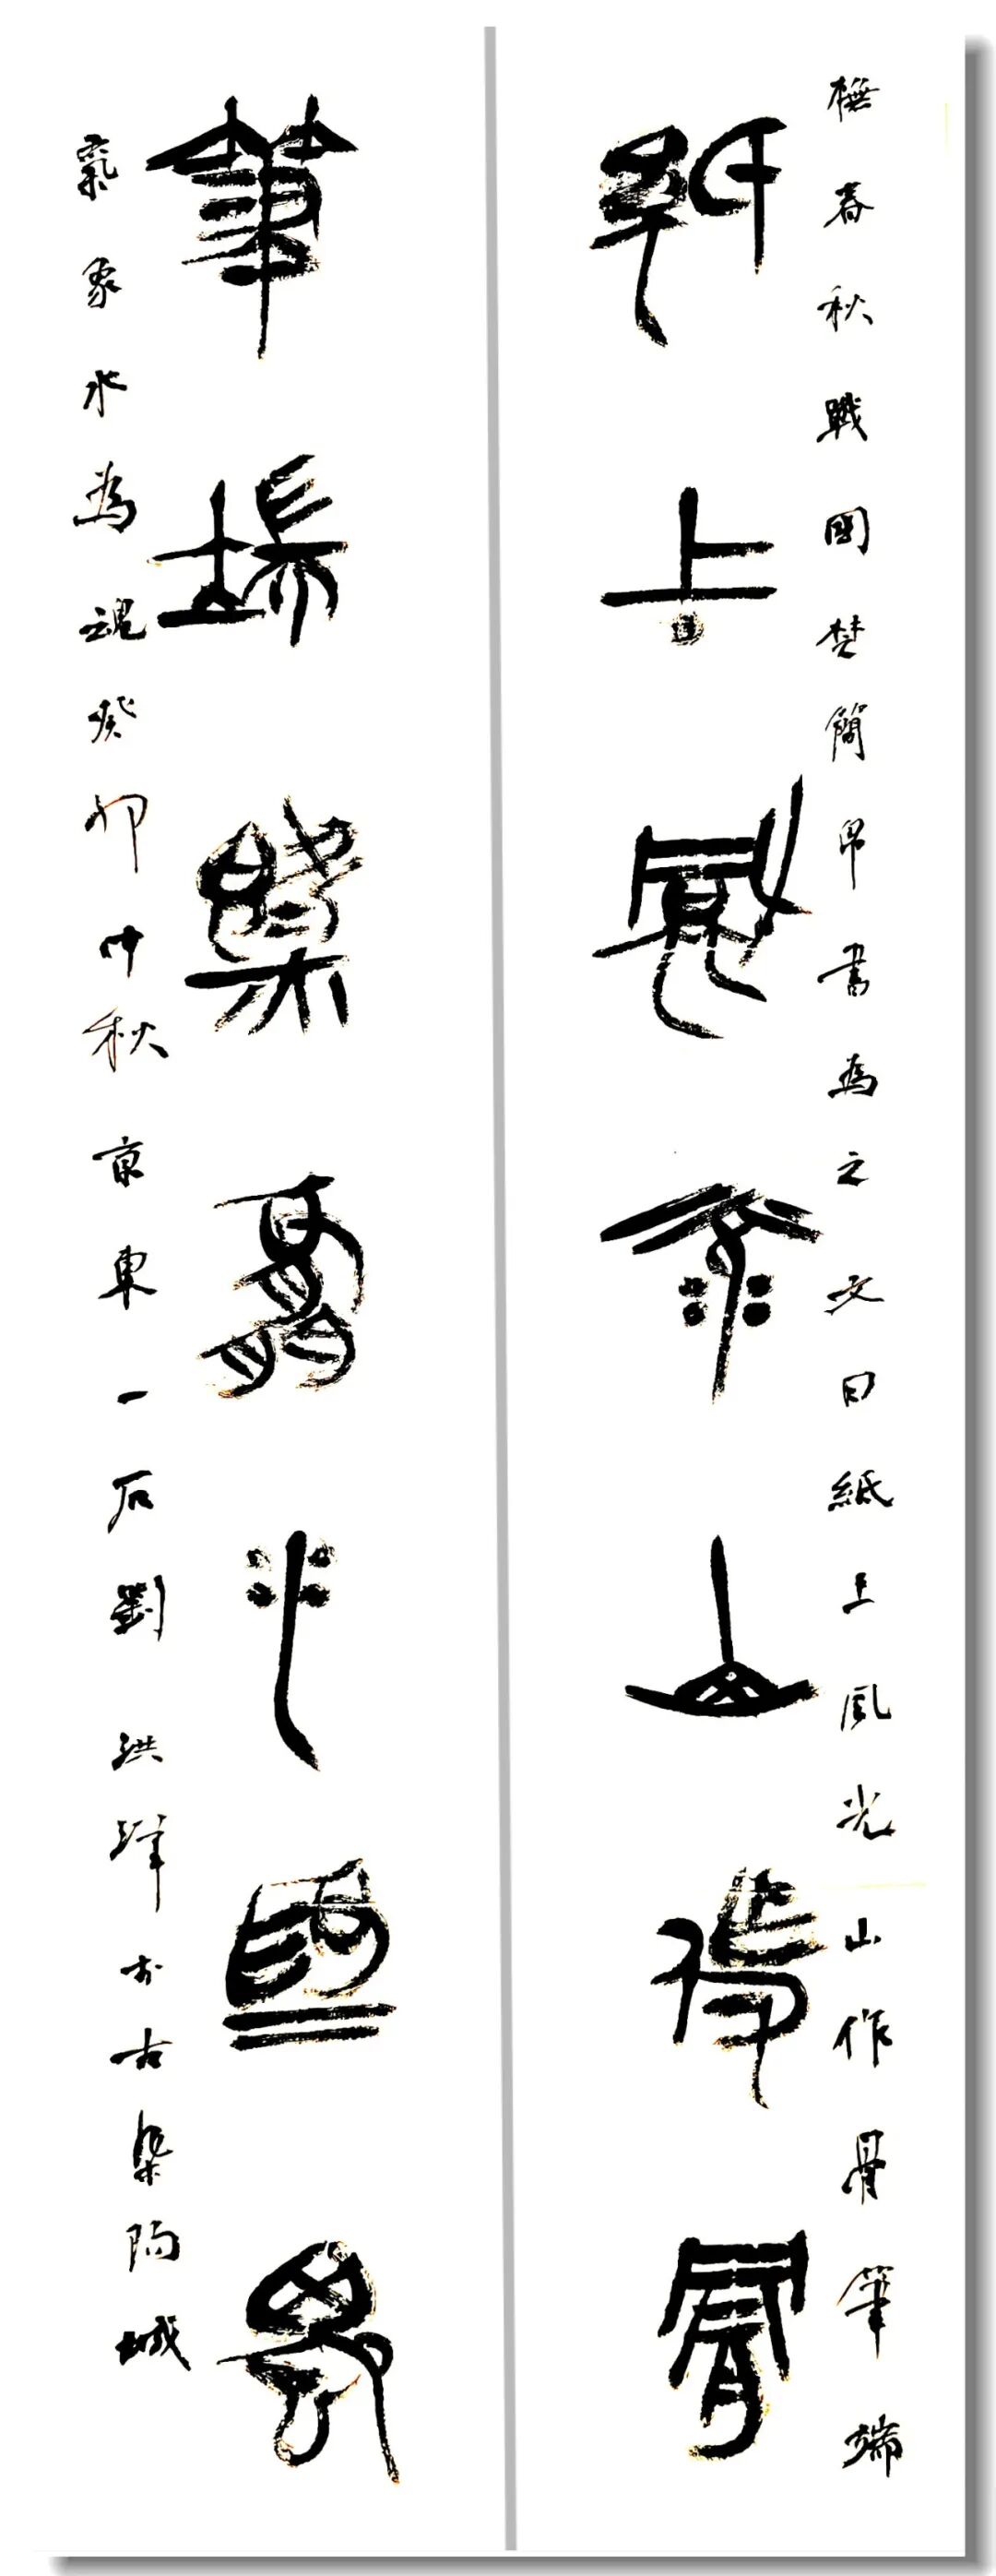 橅春秋戰國楚簡帛書為之文曰紙上風光山作骨筆端
紙上風光山作骨
筆端氣象水為魂
氣象水為魂癸卯仲秋京東一石劉洪洋於古渠陽城